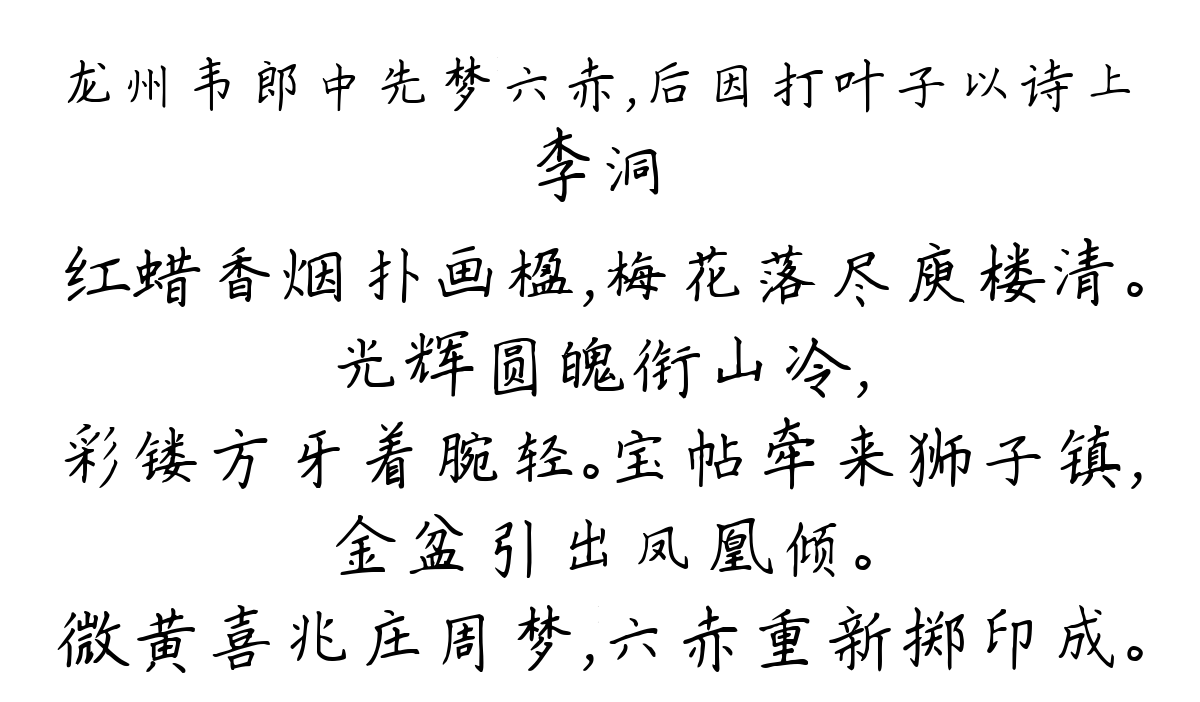 龙州韦郎中先梦六赤,后因打叶子以诗上
李洞
红蜡香烟扑画楹,梅花落尽庾楼清。
光辉圆魄衔山冷,
彩镂方牙着腕轻。宝帖牵来狮子镇,
金盆引出凤凰倾。
微黄喜兆庄周梦,六赤重新掷印成。